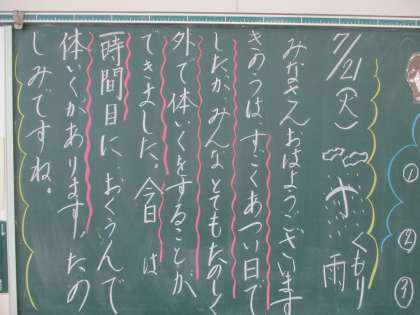 7/21(火) くもり 雨
みなさんおはようございます
きのうは、すごくあつい日で
したが、みんなとてもたのしく
外で体いくをすることが
できました。今日は
一時間目に、おくうんで
体いくがあります。たの
しみですね。
①
②
③